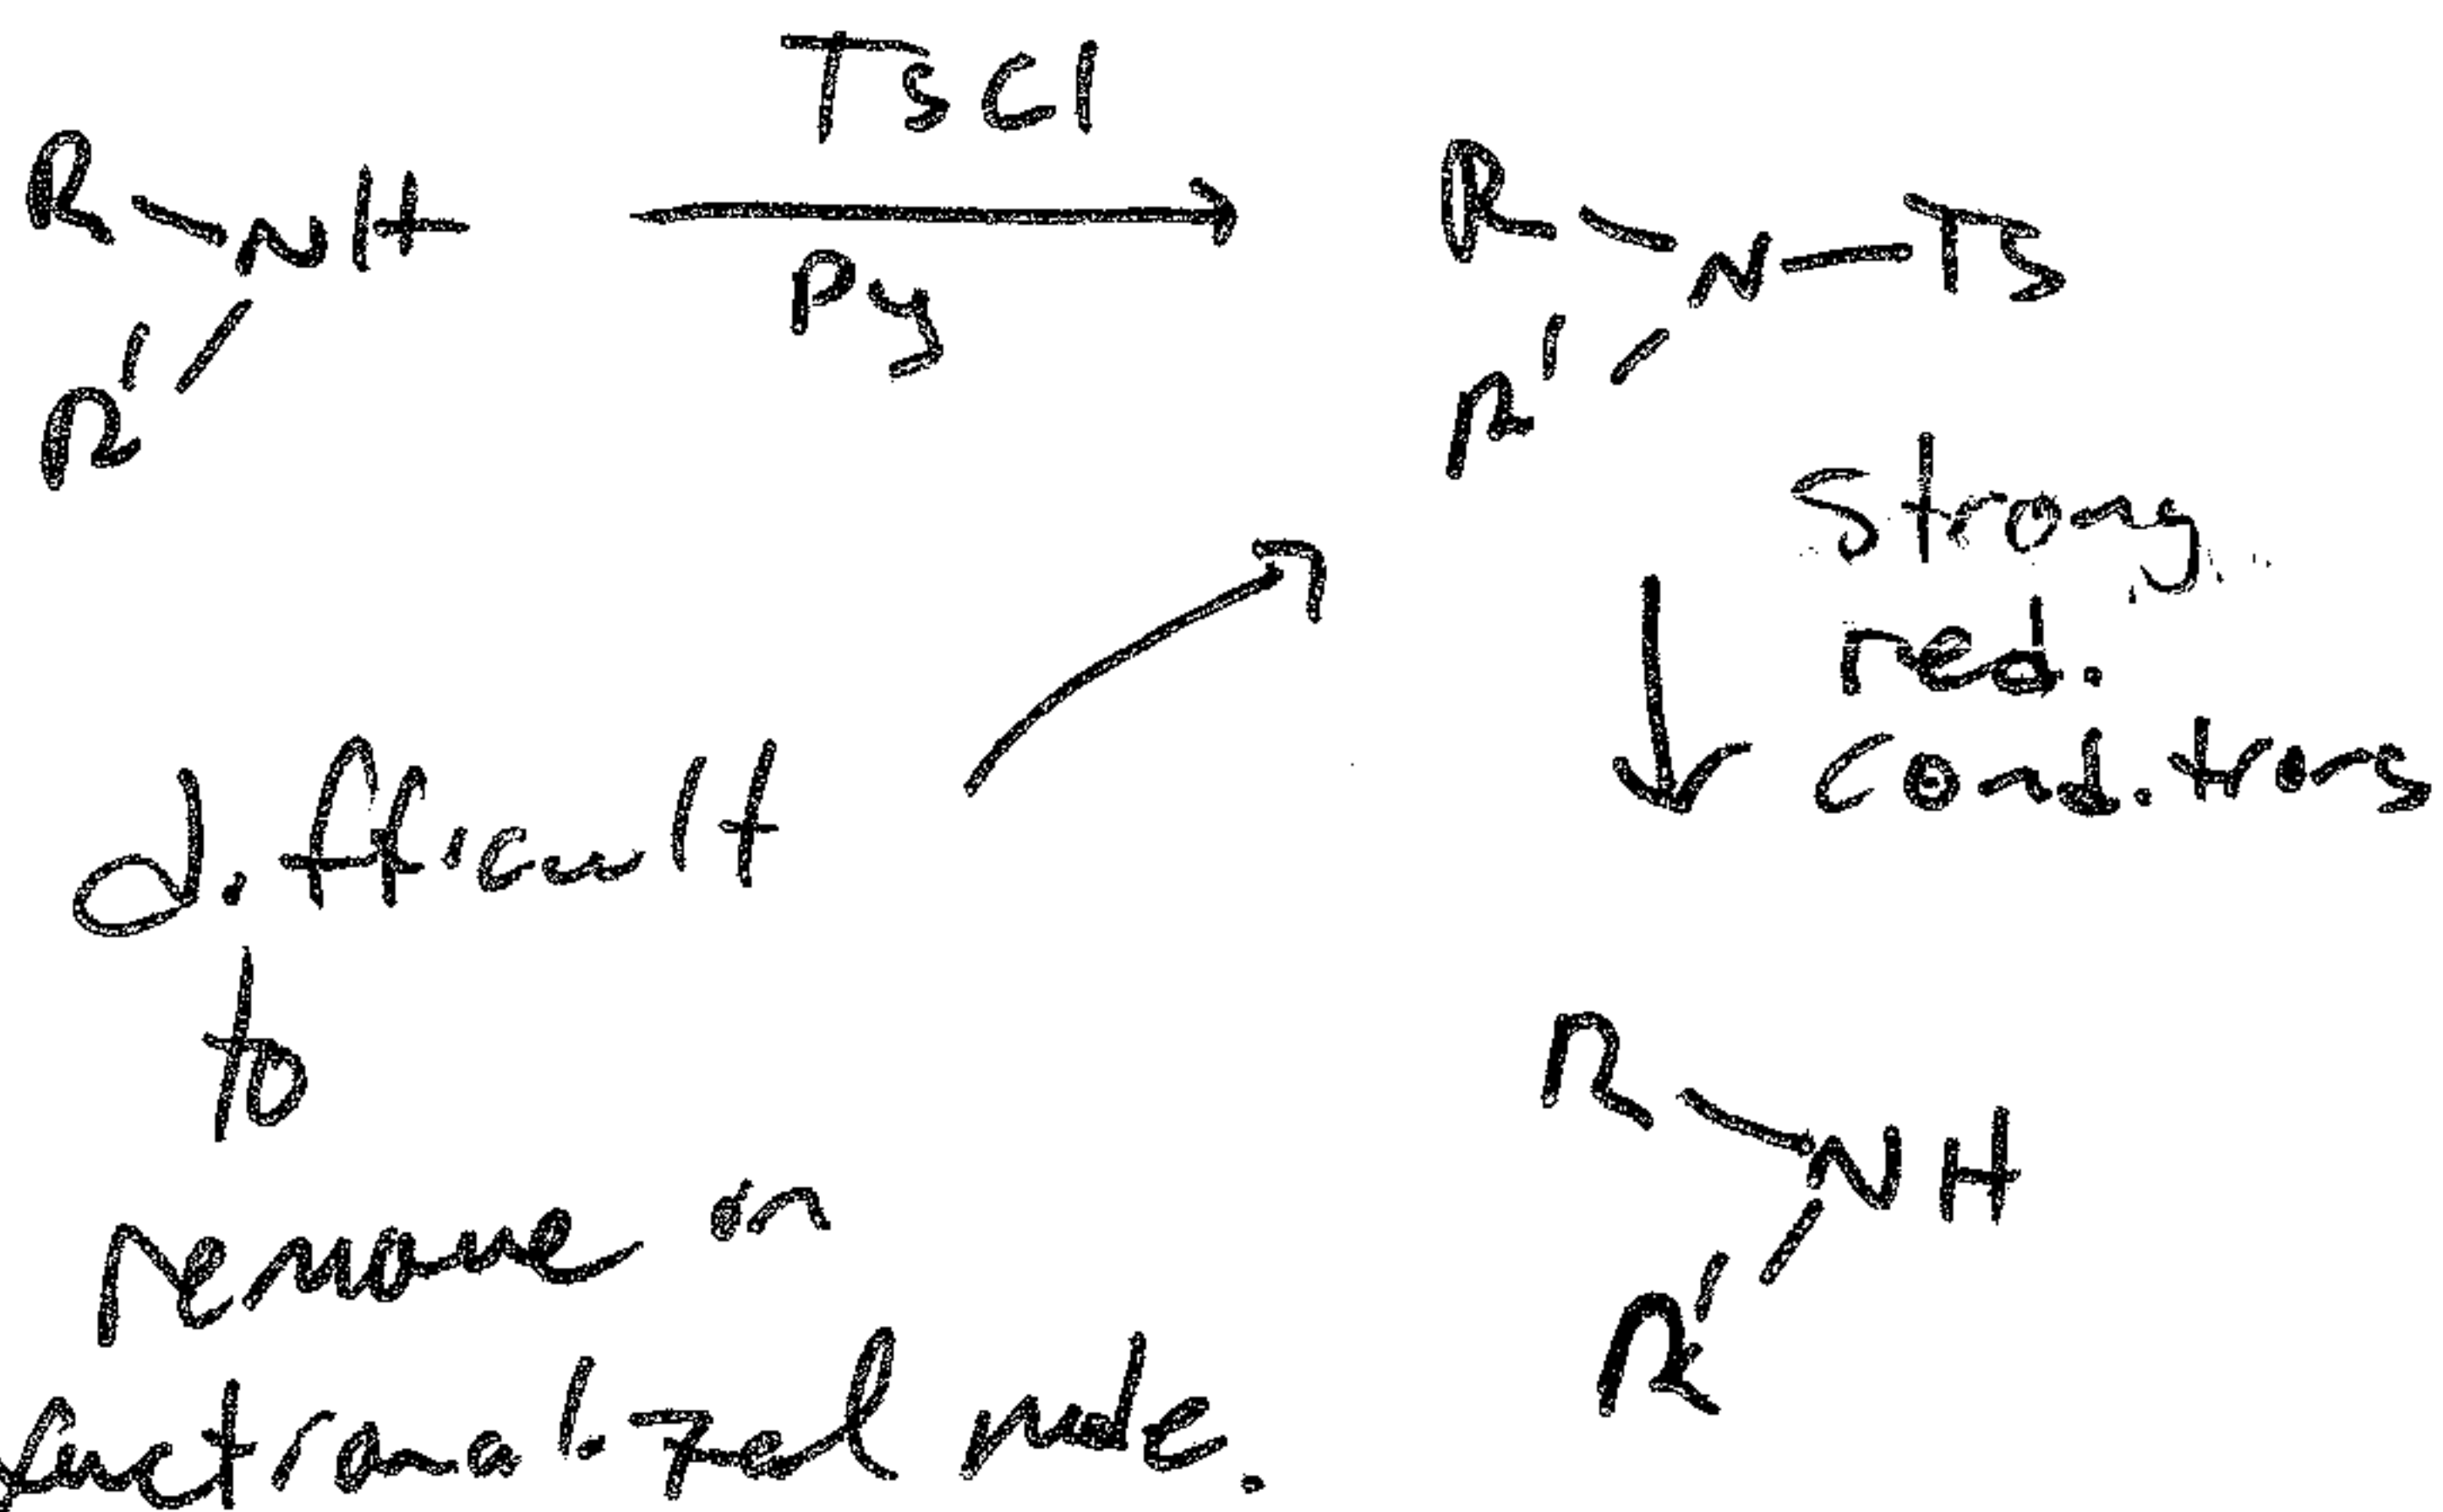 TsCl
R NH
R'
Py
R N Ts
R'
strong
red.
conditions
difficult
to
remove on
functionalized mole.
R NH
R'